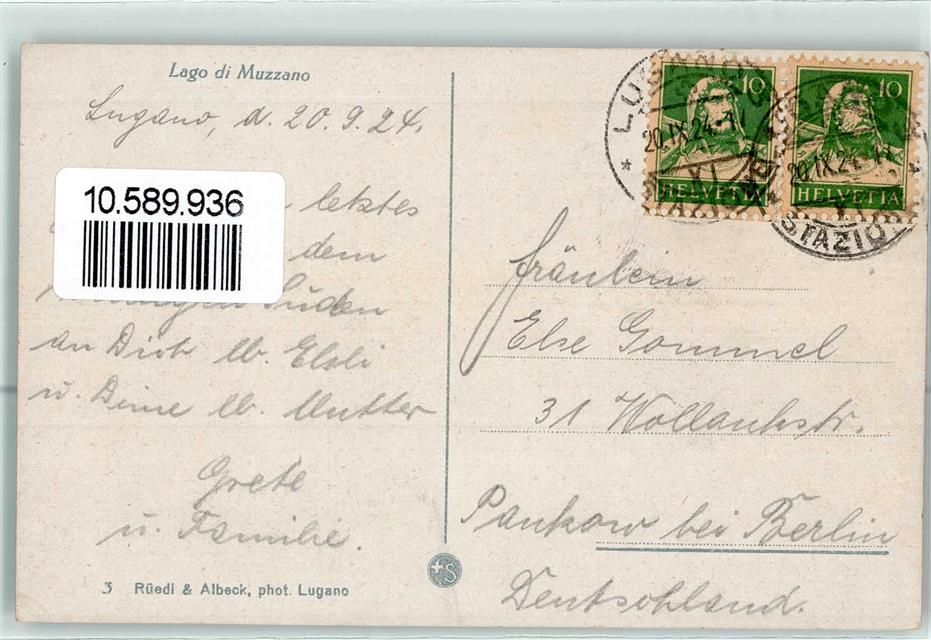 Lago di Muzzano
Lugano, d. 20.9.24.
10.589.936
letztes
dem
Süden
an Dich lb. Elsli
u. Deine lb. Mutter
Grete
u. Familie.
3 Rüedi & Albeck, phot. Lugano
+S
10
HELVETIA
10
HELVETIA
LUGANO
20.IX.24
XI
20.IX.24
STAZIO
Fräulein
Else Gommel
31 Wollankstr.
Pankow bei Berlin
Deutschland.